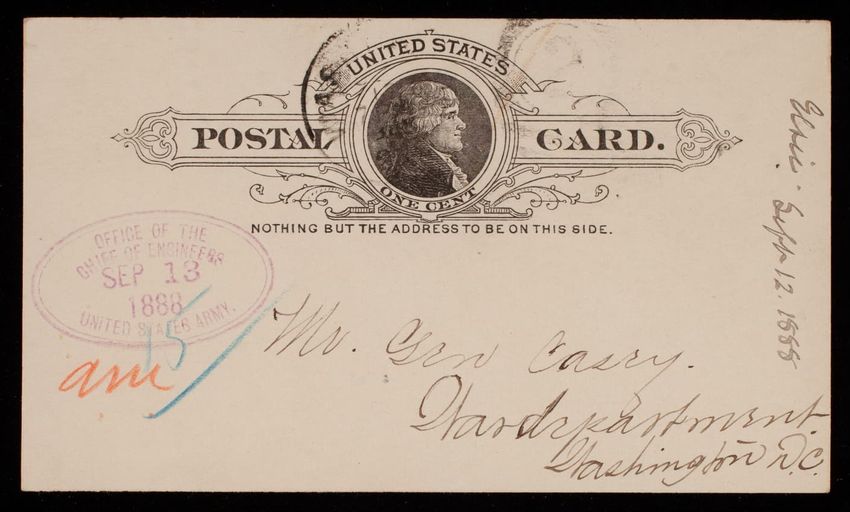 UNITED STATES
POSTAL CARD.
ONE CENT
NOTHING BUT THE ADDRESS TO BE ON THIS SIDE.
OFFICE OF THE
CHIEF OF ENGINEERS
SEP 13
1888
UNITED STATES ARMY.
15
Mr. Gen Casey.
Wardepartment
Washington D.C.
Sept 12. 1888